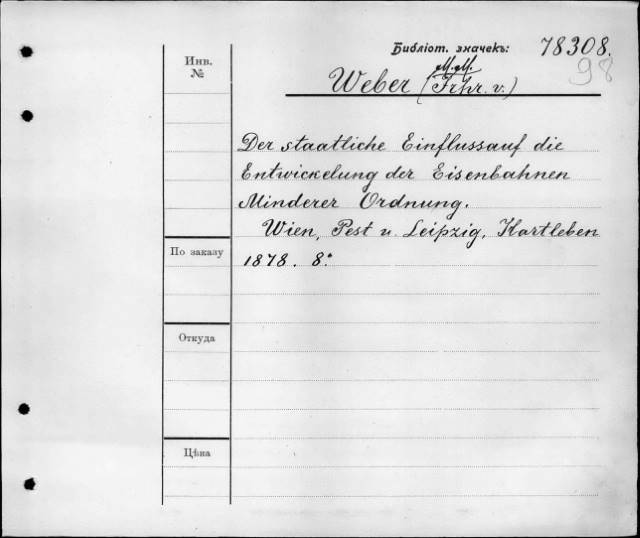 Инв.
№
Библіот. значекъ: 78308.
98
M. M.
Weber (Frhr. v.)
Der staatliche Einfluss auf die
Entwickelung der Eisenbahnen
Minderer Ordnung.
Wien, Pest u. Leipzig, Hartleben
1878. 8.°
По заказу
Откуда
Цѣна